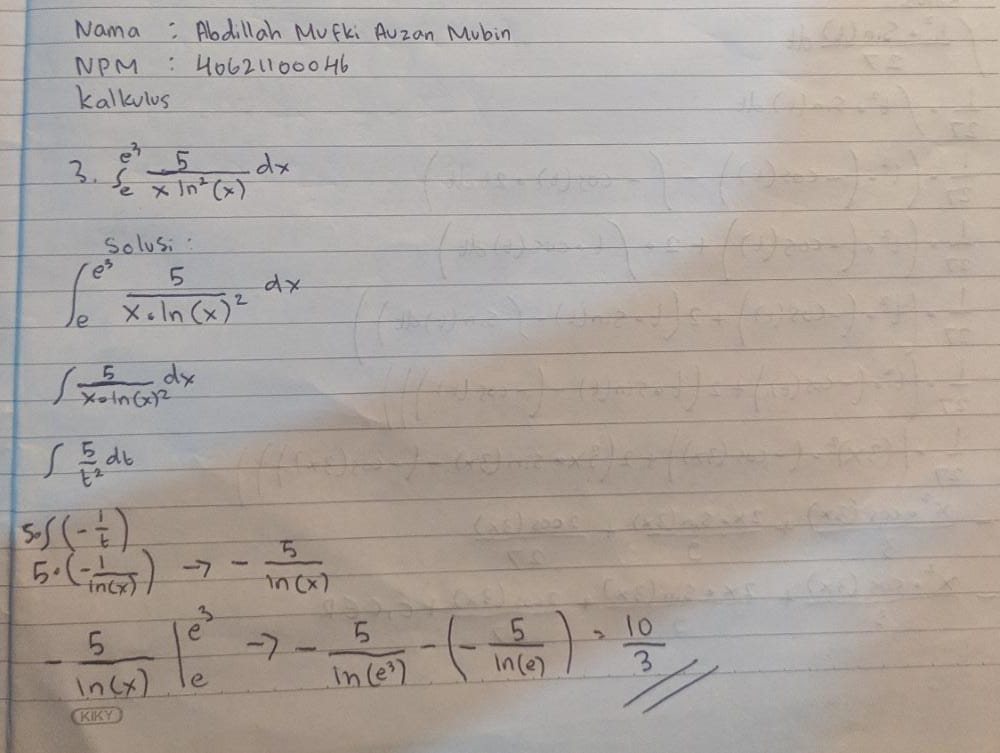 Nama : Abdillah Mufki Auzan Mubin
NPM : 40621100046
Kalkulus
3. ∫ₑ^(e³) 5/(x ln²(x)) dx
Solusi :
∫ₑ^(e³) 5/(x•ln(x)²) dx
∫ 5/(x•ln(x)²) dx
∫ 5/t² dt
5•∫(-1/t)
5•(-1/ln(x)) → - 5/ln(x)
- 5/ln(x) |ₑ^(e³) → - 5/ln(e³) - (- 5/ln(e)) = 10/3
KIKY